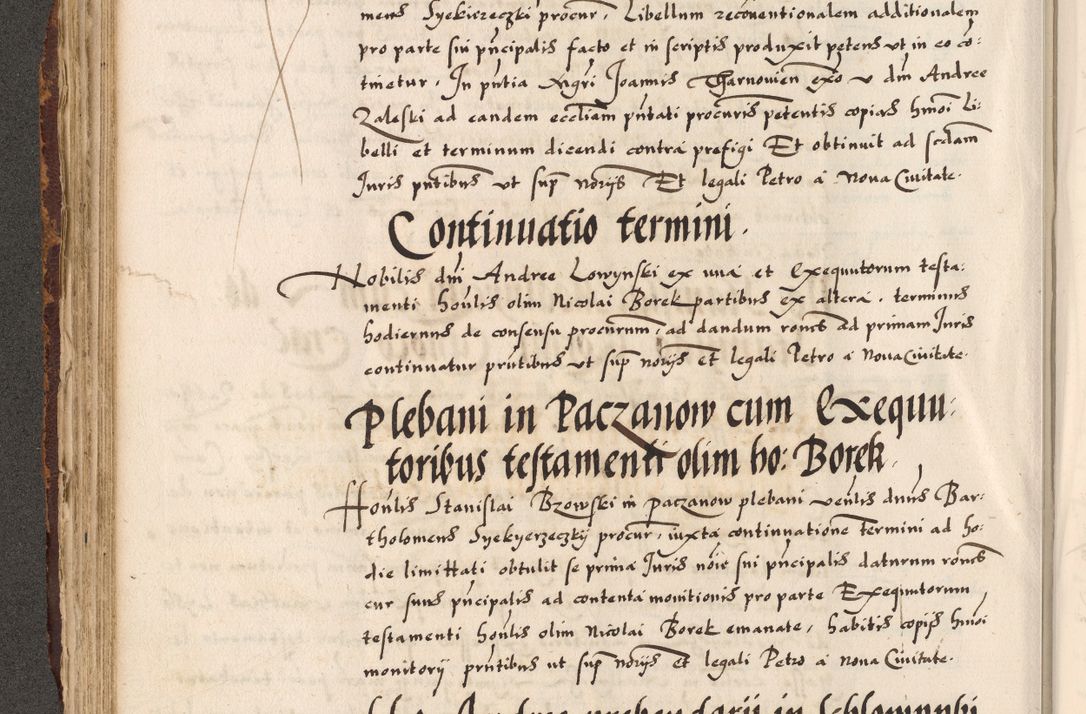 mens Syekierzeczki procur, Libellum reconventionalem additionalem
pro parte sui pncipalis facto et in scriptis produxit petens ut in eo co:
tinetur, In pntia Mgri Joannis Tharnovien exo v dni Andree
Zaleski ad eandem eccliam pntati procuris petentis copias hmoi Li:
belli et terminum dicendi contra prefigi Et obtinuit ad scdam
Juris pntibus ut sup noriis Et legali Petro a Nova Civitate.
Continuatio termini.
Nobilis dni Andree Lowynski ex una et Exequutorum testa:
menti honlis olim Nicolai Borek partibus ex altera, terminus
hodiernus de consensu procurum, ad dandum roncs ad primam Juris
continuatur pntibus ut sup noriis et legali Petro a Nova Civitate.
Plebani in Paczanow cum Exequu:
toribus testamenti olim ho: Borek.
Honlis Stanislai Bzowski in paczanow plebani venlis dnus Bar:
tholomeus Syekyerzeczky procur, iuxta continuatione termini ad ho:
die limittati obtulit se prima Juris noie sui pncipalis daturum roncs
cur suus pncipalis ad contenta monitionis pro parte Exequutorum
testamenti honlis olim Nicolai Borek emanate, habitis copiis hmoi
monitorii pntibus ut sup noriis et legali Petro a nova Civitate.
Andree in